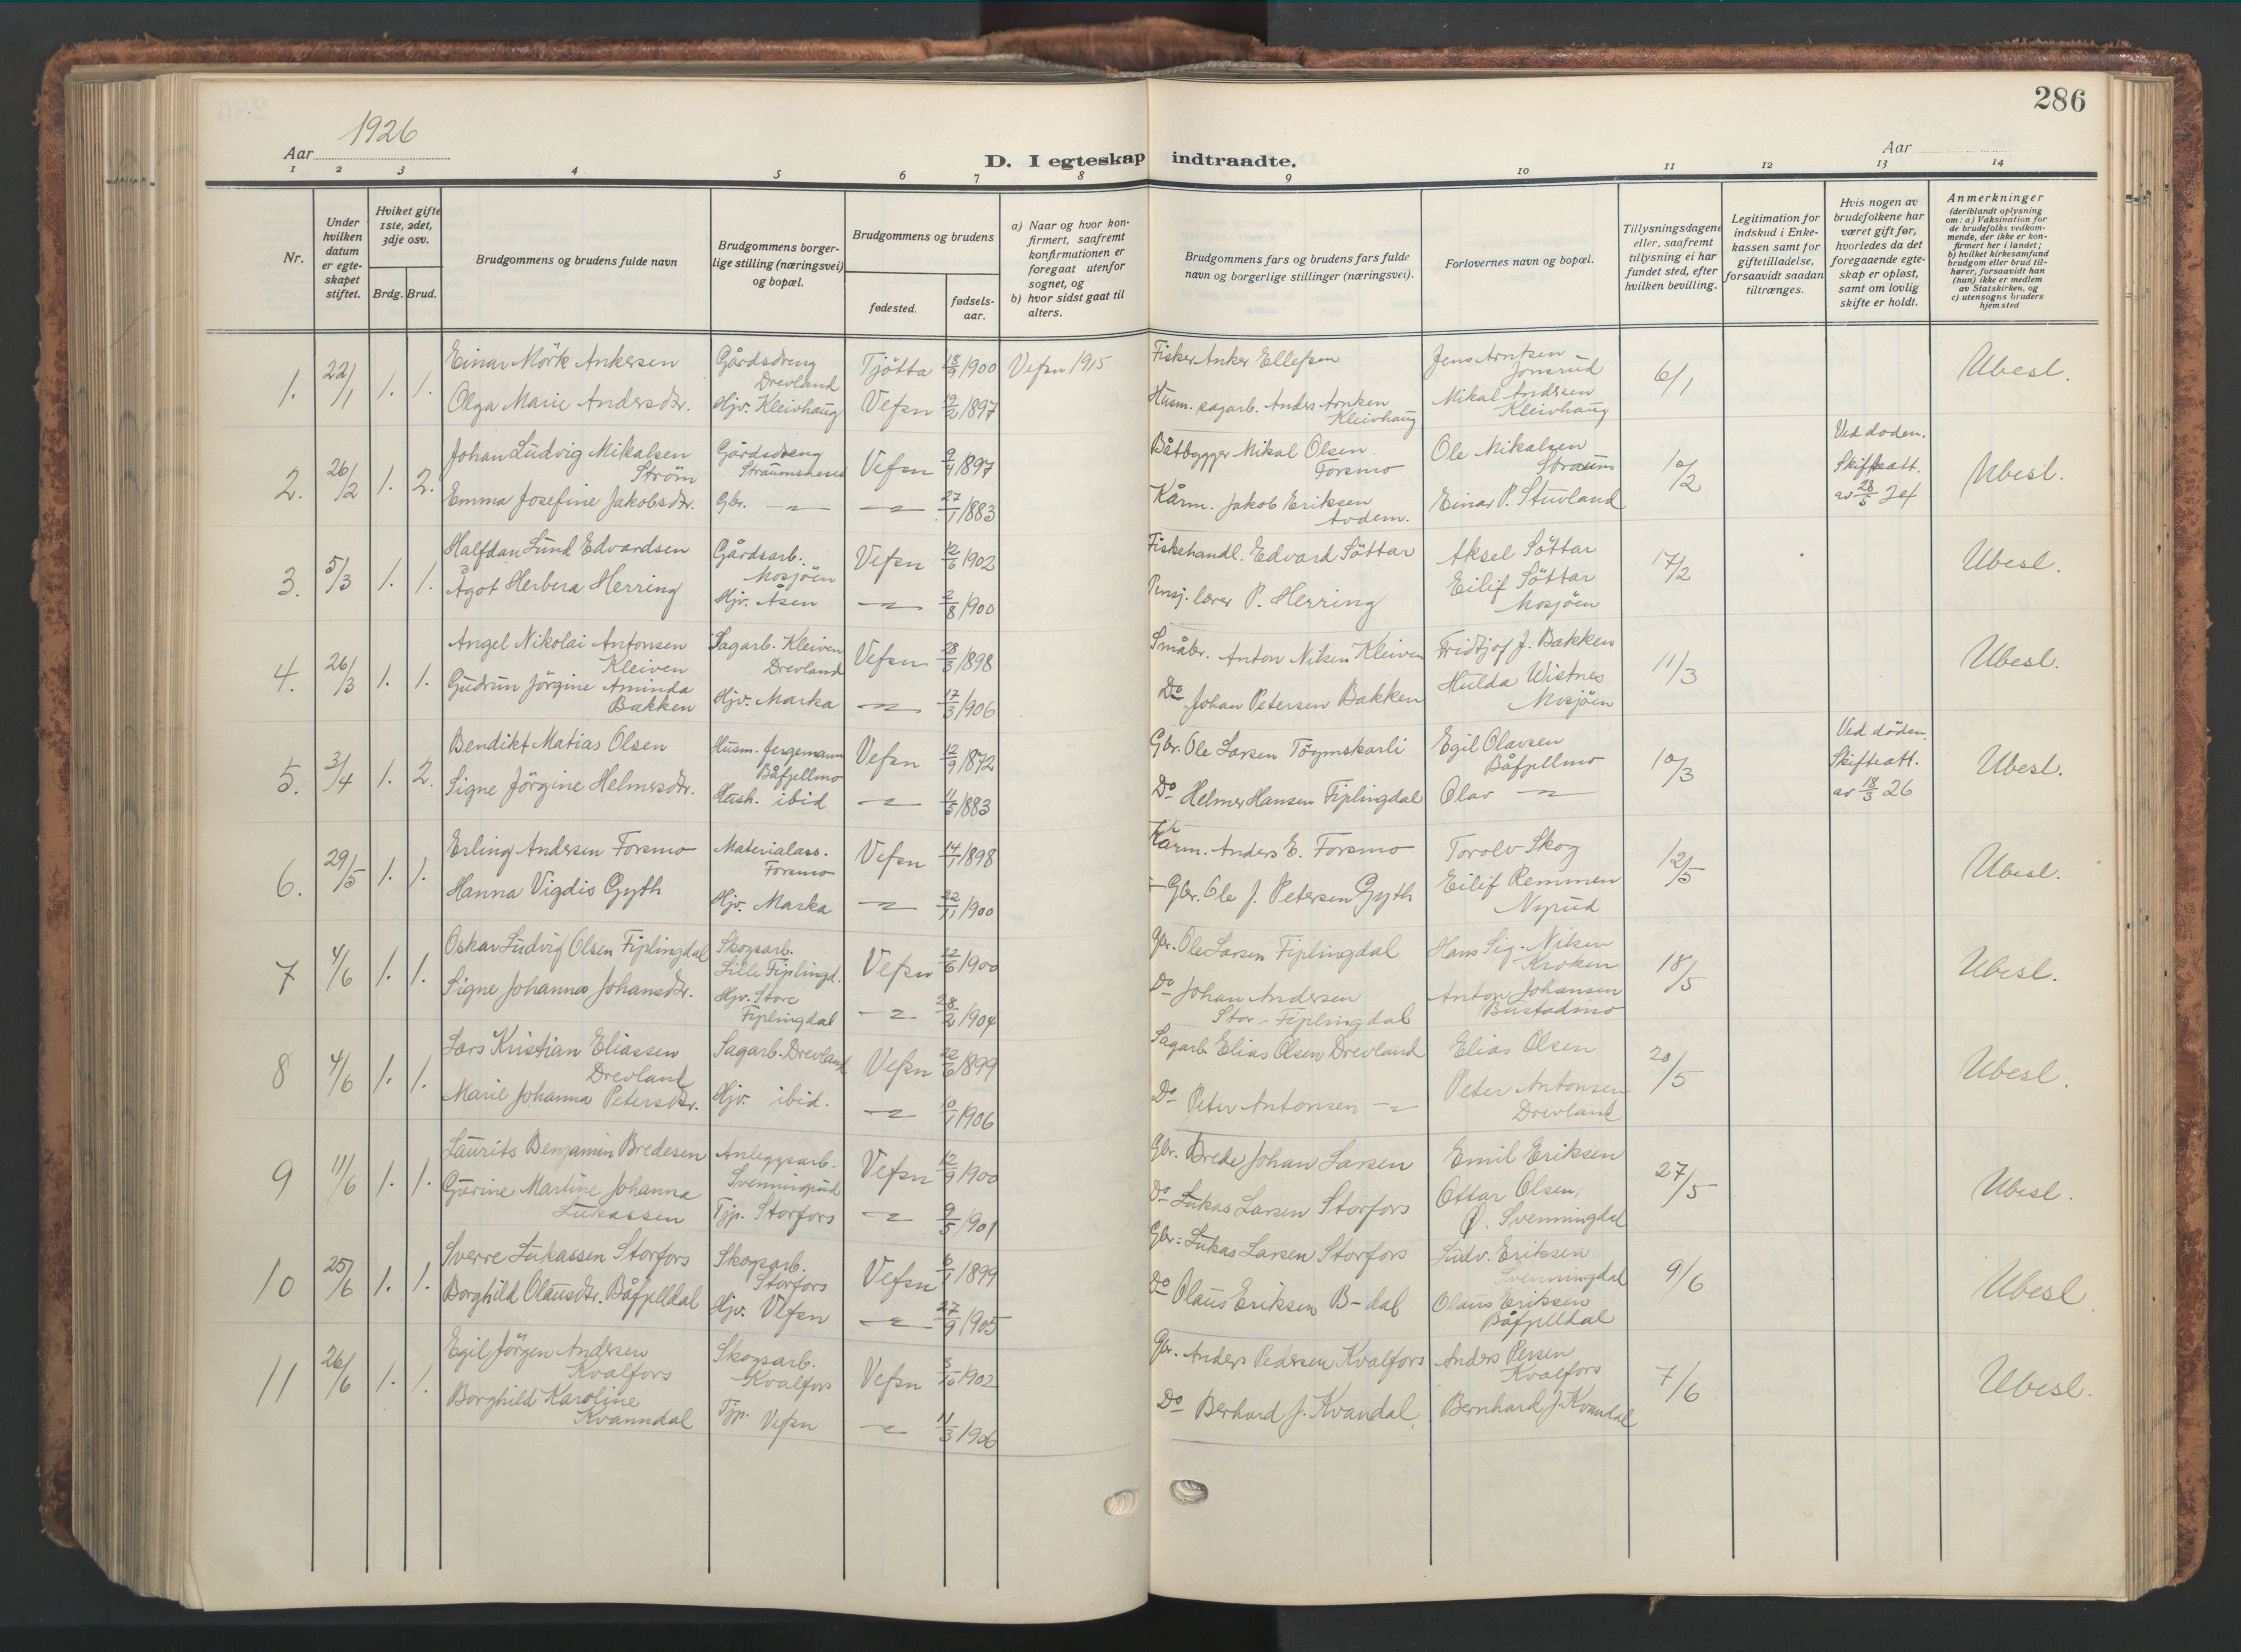 286
Aar 1926
D. I egteskap indtraadte.
Aar
1 2 3 4 5 6 7 8 9 10 11 12 13 14
Nr.
Under hvilken datum er egteskapet stiftet.
Hviket gifte 1ste, 2det, 3dje osv.
Brdg. Brud.
Brudgommens og brudens fulde navn
Brudgommens borgerlige stilling (næringsvei) og bopæl.
Brudgommens og brudens
fødested.
fødselsaar.
a) Naar og hvor konfirmert, saafremt konfirmationen er foregaat utenfor sognet, og
b) hvor sidst gaat til alters.
Brudgommens fars og brudens fars fulde navn og borgerlige stillinger (næringsvei).
Forlovernes navn og bopæl.
Tillysningsdagene eller, saafremt tillysning ei har fundet sted, efter hvilken bevilling.
Legitimation for indskud i Enkekassen samt for giftetilladelse, forsaavidt saadan tiltrænges.
Hvis nogen av brudefolkene har været gift før, hvorledes da det foregaaende egteskap er opløst, samt om lovlig skifte er holdt.
Anmerkninger
(deriblandt oplysning om: a) Vaksination for de brudefolks vedkommende, der ikke er konfirmert her i landet; b) hvilket kirkesamfund brudgom eller brud tilhører, forsaavidt han (hun) ikke er medlem av Statskirken, og c) utensogns bruders hjemsted
1. 22/1 1. 1. Einar Mörk Ankersen Gårdsdreng Drevland Tjötta 18/9 1900 Vefsn 1915 Fisker Anker Ellefsen Jens Arntsen Jonsrud 6/1 Ubesl.
Olga Marie Andersdtr. Hjv. Kleivhaug Vefsn 19/2 1897 Husm. sagarb. Anders Arntsen Kleivhaug Mikal Andersen Kleivhaug
2. 26/2 1. 2. Johan Ludvig Mikalsen Ström Gårdsdreng Vefsn 9/4 1897 Båtbygger Mikal Olsen Forsmo Ole Mikalsen Straum 10/2 Ved døden. Skifteatt. av 28/5 24 Ubesl.
Emma Josefine Jakobsdtr. Gbr. –"– –"– 27/1 1883 Kårm. Jakob Eriksen Einar P. Stuvland
3. 5/3 1. 1. Halfdan Lund Edvardsen Gårdsarb. Mosjöen Vefsn 12/6 1902 Fiskehandl. Edvard Söttar Aksel Söttar 17/2 Ubesl.
Ågot Herbera Herring Hjv. Åsen –"– 2/8 1900 Pensj. lærer P. Herring Eilif Söttar Mosjöen
4. 26/3 1. 1. Angel Nikolai Antonsen Kleiven Sagarb. Kleiven Drevland Vefsn 28/3 1898 Småbr. Anton Nilsen Kleiven Fridtjof J. Bakken 11/3 Ubesl.
Gudrun Jörgine Aminda Bakken Hjv. Marka –"– 17/3 1906 Do Johan Petersen Bakken Hulda Wistnes Mosjöen
5. 3/4 1. 2. Bendikt Matias Olsen Husm. fergemann Båfjellmo Vefsn 12/9 1872 Gbr. Ole Larsen Egil Olavsen Båfjellmo 10/3 Ved döden. Skifteatt. av 18/3 26 Ubesl.
Signe Jörgine Helmersdtr. Hush. ibid –"– 11/5 1883 Do Helmer Hansen Fiplingdal Olav –"–
6. 29/5 1. 1. Erling Andersen Forsmo Materialass. Forsmo Vefsn 14/1 1898 Kårm. Anders E. Forsmo Torolv Skog 12/5 Ubesl.
Hanna Vigdis Gyth Hjv. Marka –"– 22/11 1900 Gbr. Ole J. Petersen Gyth Eilif Remmen Nyrud
7 4/6 1. 1. Oskar Ludvig Olsen Fiplingdal Skogsarb. Lille Fiplingd. Vefsn 22/6 1900 Gbr. Ole Larsen Fiplingdal Hans Sig. Nilsen Kroken 18/5 Ubesl.
Signe Johanna Johansdtr. Hjv. Store Fiplingdal –"– 28/2 1904 Do Johan Andersen Stor-Fiplingdal Anton Johansen Bustadmo
8 4/6 1. 1. Lars Kristian Eliassen Drevland Sagarb. Drevland Vefsn 22/6 1899 Sagarb. Elias Olsen Drevland Elias Olsen 20/5 Ubesl.
Marie Johanna Petersdtr. Hjv. ibid. –"– 1906 Do Peter Antonsen –"– Peter Antonsen Drevland
9 11/6 1. 1. Laurits Benjamin Bredesen Anleggsarb. Svenningrud Vefsn 12/9 1900 Gbr. Brede Johan Larsen Emil Eriksen 27/5 Ubesl.
Gurine Martine Johanna Lukassen Tjp. Storfors –"– 9/5 1901 Do Lukas Larsen Storfors Ottar Olsen, Ø. Svenningdal
10 25/6 1. 1. Sverre Lukassen Storfors Skogsarb. Storfors Vefsn 6/1 1899 Gbr. Lukas Larsen Storfors Ludv. Eriksen Svenningdal 9/6 Ubesl.
Borghild Olausdtr. Båfjelldal Hjv. Vefsn –"– 27/9 1905 Do Olaus Eriksen B-dal Olaus Eriksen Båfjelldal
11 26/6 1. 1. Egil Jörgen Andersen Kvalfors Skogsarb. Kvalfors Vefsn 3/10 1902 Gbr. Anders Pedersen Kvalfors Anders Persen Kvalfors 7/6 Ubesl.
Borghild Karoline Kvanndal Tjp. Vefsn –"– 11/3 1906 Do Berhard J. Kvandal, Bernhard J. Kvandal